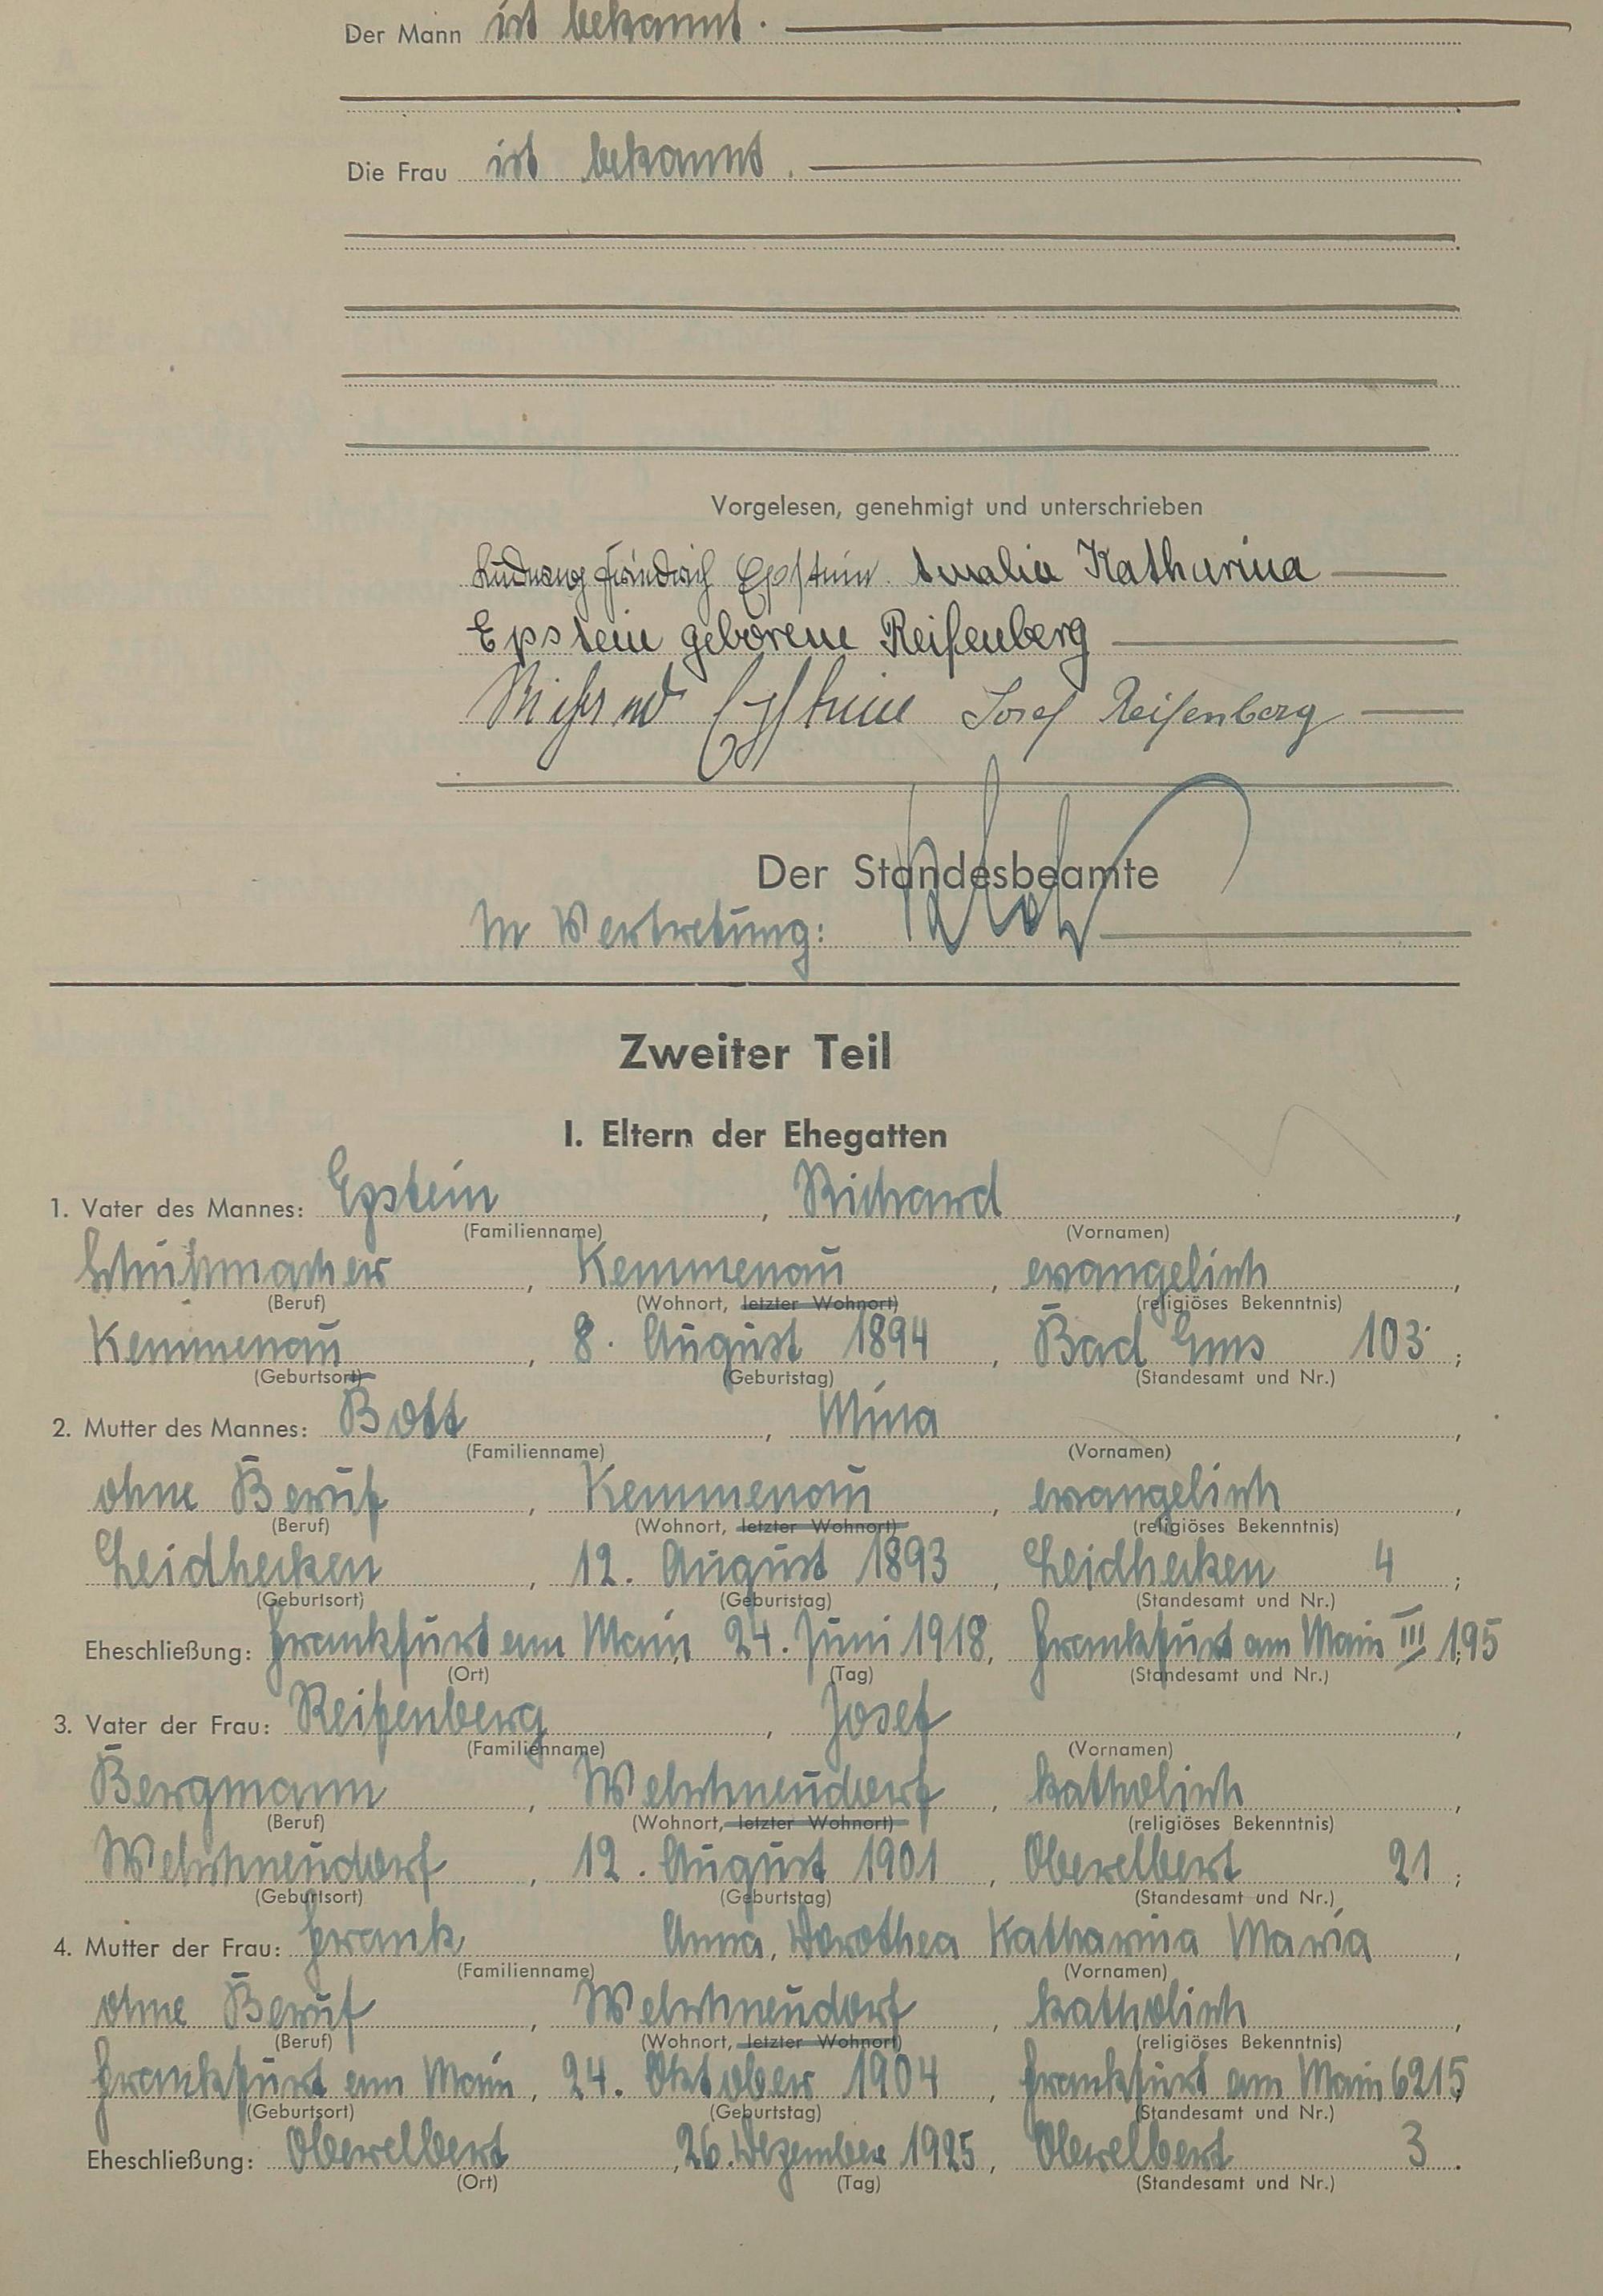 Der Mann ist bekannt.
Die Frau ist bekannt.
Vorgelesen, genehmigt und unterschrieben
Ludwig Friedrich Epstein Amalia Katharina
Epstein geborene Reifenberg
Richard Epstein Josef Reifenberg
Der Standesbeamte
In Vertretung:
Zweiter Teil
I. Eltern der Ehegatten
1. Vater des Mannes: Epstein, Richard,
(Familienname) (Vornamen)
Schuhmacher, Kemmenau, evangelisch,
(Beruf) (Wohnort, letzter Wohnort) (religiöses Bekenntnis)
Kemmenau, 8. August 1894, Bad Ems 103;
(Geburtsort) (Geburtstag) (Standesamt und Nr.)
2. Mutter des Mannes: Bott, Mina,
(Familienname) (Vornamen)
ohne Beruf, Kemmenau, evangelisch,
(Beruf) (Wohnort, letzter Wohnort) (religiöses Bekenntnis)
Leidhecken, 12. August 1893, Leidhecken 4;
(Geburtsort) (Geburtstag) (Standesamt und Nr.)
Eheschließung: Frankfurt am Main, 24. Juni 1918, Frankfurt am Main III 195
(Ort) (Tag) (Standesamt und Nr.)
3. Vater der Frau: Reifenberg, Josef,
(Familienname) (Vornamen)
Bergmann, Welschneudorf, katholisch,
(Beruf) (Wohnort, letzter Wohnort) (religiöses Bekenntnis)
Welschneudorf, 12. August 1901, Oberelbert 21;
(Geburtsort) (Geburtstag) (Standesamt und Nr.)
4. Mutter der Frau: Frank Anna, Dorothea Katharina Maria,
(Familienname) (Vornamen)
ohne Beruf, Welschneudorf, katholisch,
(Beruf) (Wohnort, letzter Wohnort) (religiöses Bekenntnis)
Frankfurt am Main, 24. Oktober 1904, Frankfurt am Main 6215;
(Geburtsort) (Geburtstag) (Standesamt und Nr.)
Eheschließung: Oberelbert, 26. Dezember 1925, Oberelbert 3.
(Ort) (Tag) (Standesamt und Nr.)